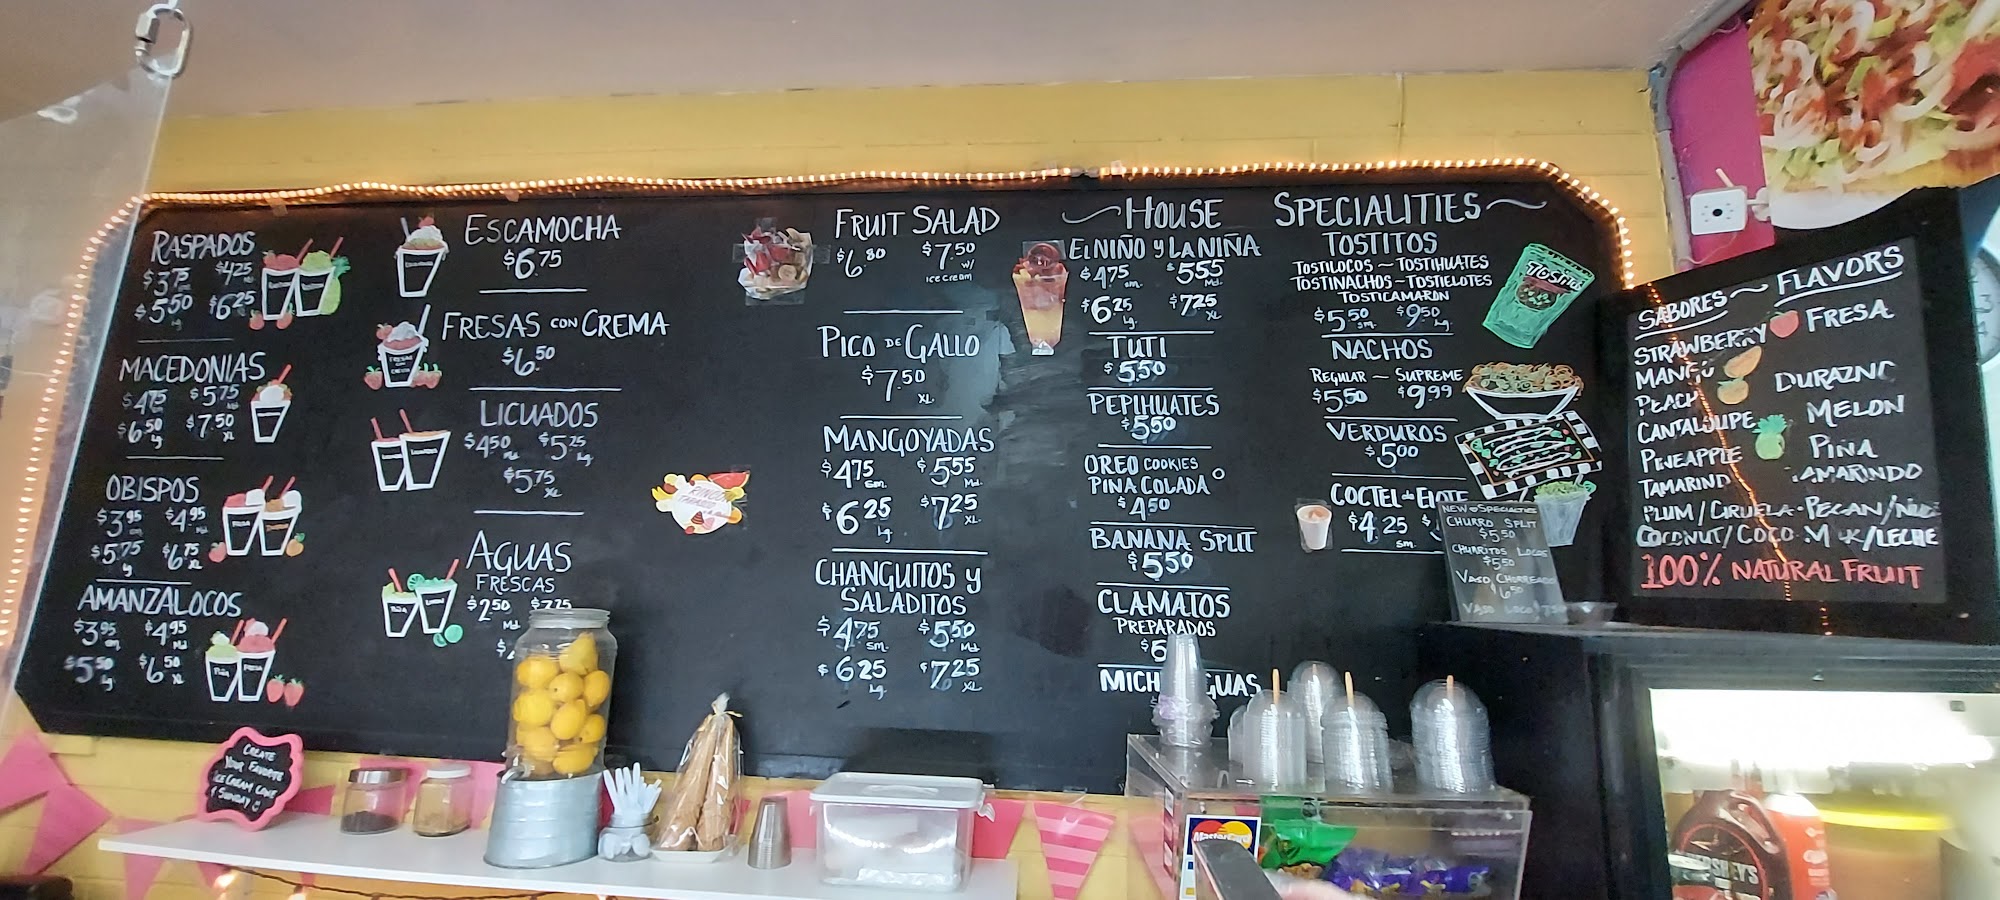 RASPADOS
$3.75 sm $4.25 Md.
$5.50 Lg $6.25 XL
MACEDONIAS
$4.75 sm $5.75 Md
$6.50 Lg $7.50 XL
OBISPOS
$3.95 sm $4.95 Md.
$5.75 Lg $6.75 XL
AMANZALOCOS
$3.95 sm $4.95 Md
$5.50 Lg $6.50 XL
ESCAMOCHA
$6.75
FRESAS CON CREMA
$6.50
LICUADOS
$4.50 Md $5.25 Lg.
$5.75 XL
AGUAS
FRESCAS
$2.50 Md.
FRUIT SALAD
$6.80 $7.50
w/
ICE CREAM
PICO DE GALLO
$7.50
XL
MANGOYADAS
$4.75 sm. $5.55 Md.
$6.25 Lg $7.25 XL.
CHANGUITOS y
SALADITOS
$4.75 sm. $5.50 Md.
$6.25 Lg. $7.25 XL
HOUSE SPECIALITIES
EL NIÑO y LA NIÑA
$4.75 sm. $5.55 Md.
$6.25 Lg. $7.25 XL
TUTI
$5.50
PEPIHUATES
$5.50
OREO COOKIES
PINA COLADA
$4.50
BANANA SPLIT
$5.50
CLAMATOS
PREPARADOS
$5
TOSTITOS
TOSTILOCOS ~ TOSTIHUATES
TOSTINACHOS ~ TOSTIELOTES
TOSTICAMARON
$5.50 sm. $9.50 Lg.
NACHOS
REGULAR ~ SUPREME
$5.50 $9.99
VERDUROS
$5.00
COCTEL de ELOTE
$4.25 sm.
NEW SPECIALTIES
CHURRO SPLIT
$5.50
CHURRITOS LOCOS
$5.50
VASO CHORREADO
$6.50
VASO LOCO
SABORES ~ FLAVORS
STRAWBERRY FRESA
MANGO
PEACH DURAZNO
CANTALOUPE MELON
PINEAPPLE PIÑA
TAMARIND TAMARINDO
PLUM/CIRUELA · PECAN/NUEZ
COCONUT/COCO · MILK/LECHE
100% NATURAL FRUIT
CREATE
YOUR FAVORITE
ICE CREAM CONE
SUNDAY
MasterCard
HERSHEY'S